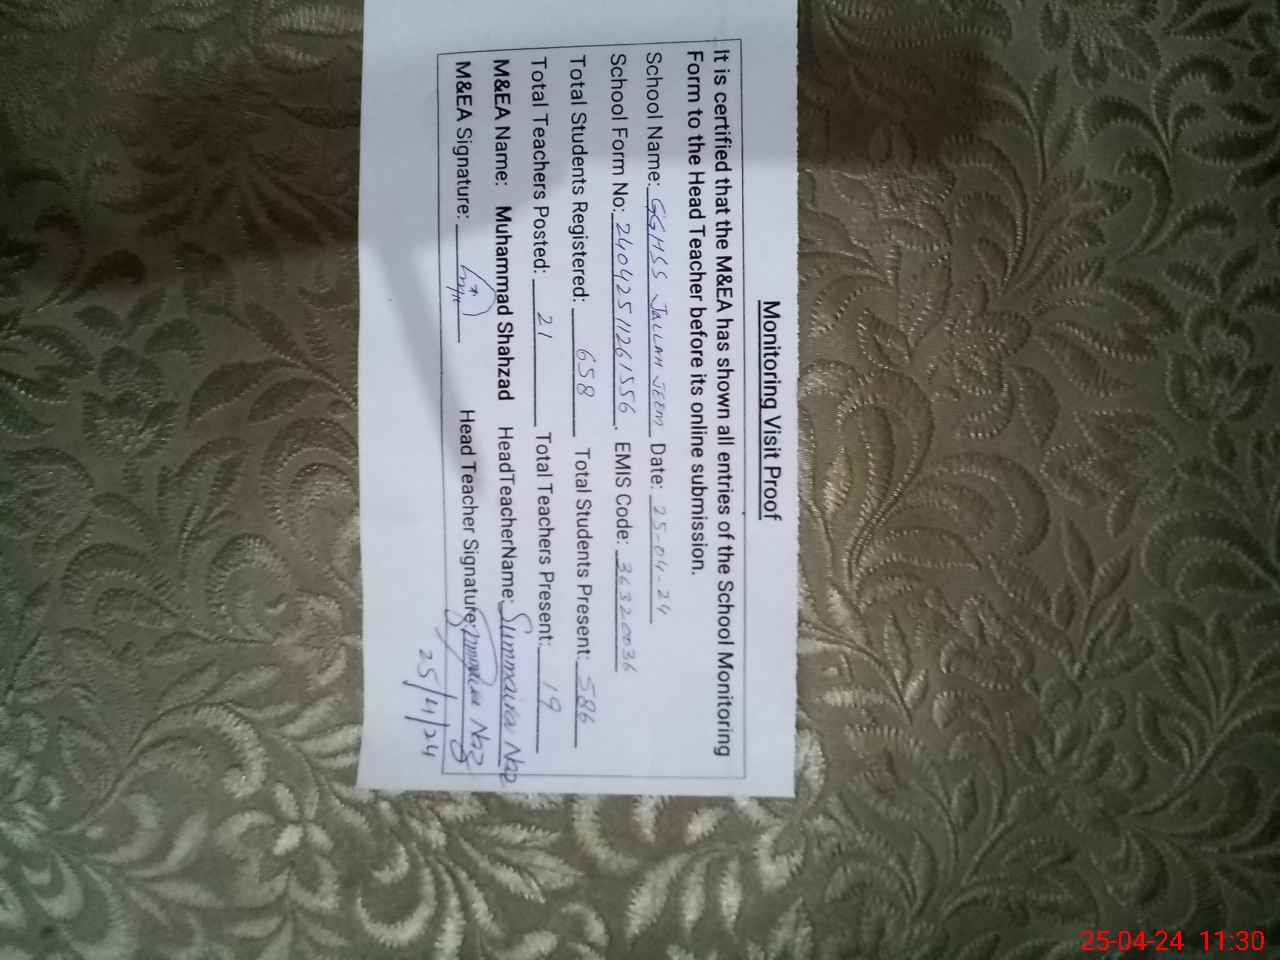 Monitoring Visit Proof
It is certified that the M&EA has shown all entries of the School Monitoring
Form to the Head Teacher before its online submission.
School Name: GGHSS JALLAH JEEM Date: 25-04-24
School Form No: 24042511261556. EMIS Code: 36320036
Total Students Registered: 658 Total Students Present: 586
Total Teachers Posted: 21 Total Teachers Present: 19
M&EA Name: Muhammad Shahzad HeadTeacherName: Summaira Naz
M&EA Signature: Head Teacher Signature: Naz
25/4/24
25-04-24 11:30